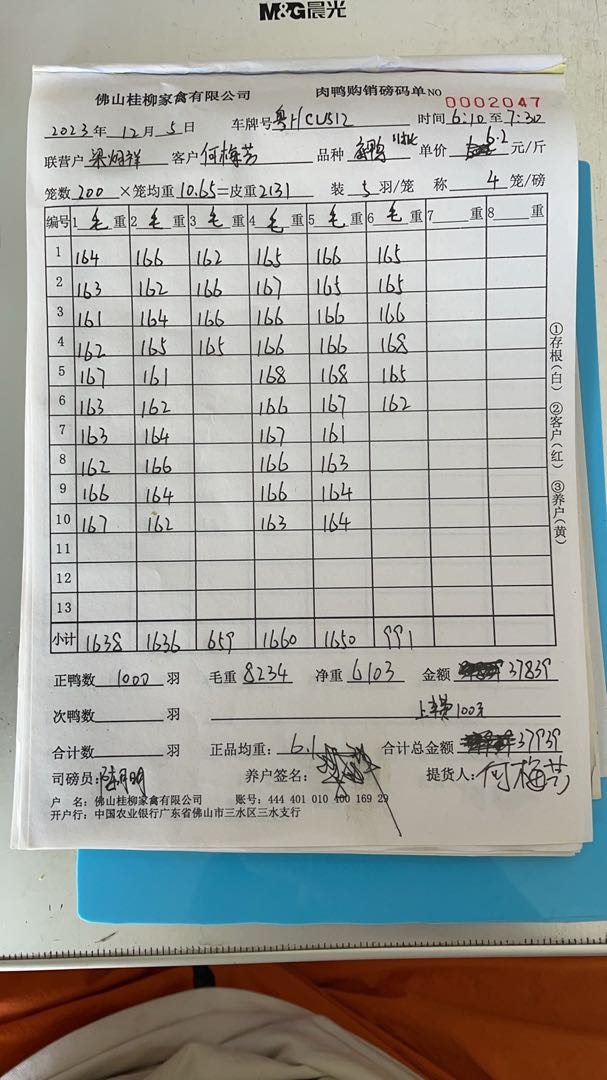 M&G晨光
佛山桂柳家禽有限公司 肉鸭购销磅码单 NO 0002047
2023年12月5日 车牌号 粤H/CU512 时间 6:10至7:30
联营户 客户 何梅芳 品种 单价 6.2 元/斤
笼数 200 ×笼均重 10.65=皮重 2131 装 5 羽/笼 称 4 笼/磅
编号 1 毛 重 2 毛 重 3 毛 重 4 毛 重 5 毛 重 6 毛 重 7 重 8 重
1 164 166 162 165 166 165
2 163 162 166 167 165 165
3 161 164 166 166 166 166
4 162 165 165 166 166 168
5 167 161 168 168 165
6 163 162 166 167 162
7 163 164 167 161
8 162 166 166 163
9 166 164 166 164
10 167 162 163 164
11
12
13
小计 1638 1636 659 1660 1650 991
①存根(白) ②客户(红) ③养户(黄)
正鸭数 1000 羽 毛重 8234 净重 6103 金额 37839
次鸭数 羽 上车费100元
合计数 羽 正品均重: 6.1 合计总金额 37939
司磅员: 养户签名: 提货人: 何梅芳
户 名: 佛山桂柳家禽有限公司 账号: 444 401 010 400 169 29
开户行: 中国农业银行广东省佛山市三水区三水支行